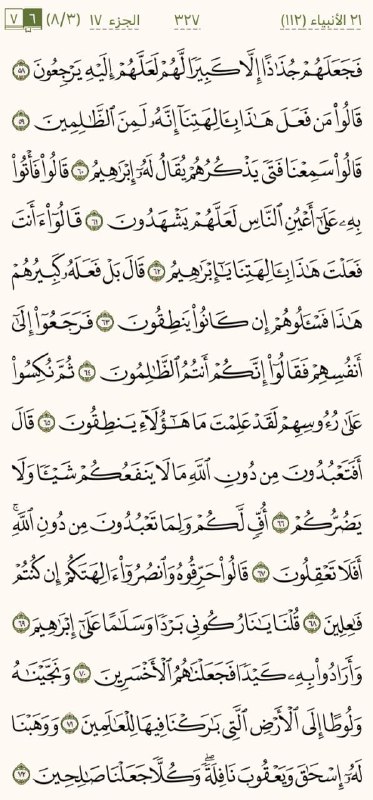 ٢١ الأنبياء (١١٢) ٣٢٧ الجزء ١٧ (٨/٣) ٦ ٧
فَجَعَلَهُمْ جُذَٰذًا إِلَّا كَبِيرًا لَّهُمْ لَعَلَّهُمْ إِلَيْهِ يَرْجِعُونَ ٥٨
قَالُوا۟ مَن فَعَلَ هَٰذَا بِـَٔالِهَتِنَآ إِنَّهُۥ لَمِنَ ٱلظَّٰلِمِينَ ٥٩
قَالُوا۟ سَمِعْنَا فَتًى يَذْكُرُهُمْ يُقَالُ لَهُۥٓ إِبْرَٰهِيمُ ٦٠ قَالُوا۟ فَأْتُوا۟
بِهِۦ عَلَىٰٓ أَعْيُنِ ٱلنَّاسِ لَعَلَّهُمْ يَشْهَدُونَ ٦١ قَالُوٓا۟ ءَأَنتَ
فَعَلْتَ هَٰذَا بِـَٔالِهَتِنَا يَٰٓإِبْرَٰهِيمُ ٦٢ قَالَ بَلْ فَعَلَهُۥ كَبِيرُهُمْ
هَٰذَا فَسْـَٔلُوهُمْ إِن كَانُوا۟ يَنطِقُونَ ٦٣ فَرَجَعُوٓا۟ إِلَىٰٓ
أَنفُسِهِمْ فَقَالُوٓا۟ إِنَّكُمْ أَنتُمُ ٱلظَّٰلِمُونَ ٦٤ ثُمَّ نُكِسُوا۟
عَلَىٰ رُءُوسِهِمْ لَقَدْ عَلِمْتَ مَا هَٰٓؤُلَآءِ يَنطِقُونَ ٦٥ قَالَ
أَفَتَعْبُدُونَ مِن دُونِ ٱللَّهِ مَا لَا يَنفَعُكُمْ شَيْـًٔا وَلَا
يَضُرُّكُمْ ٦٦ أُفٍّ لَّكُمْ وَلِمَا تَعْبُدُونَ مِن دُونِ ٱللَّهِ ۖ
أَفَلَا تَعْقِلُونَ ٦٧ قَالُوا۟ حَرِّقُوهُ وَٱنصُرُوٓا۟ ءَالِهَتَكُمْ إِن كُنتُمْ
فَٰعِلِينَ ٦٨ قُلْنَا يَٰنَارُ كُونِى بَرْدًا وَسَلَٰمًا عَلَىٰٓ إِبْرَٰهِيمَ ٦٩
وَأَرَادُوا۟ بِهِۦ كَيْدًا فَجَعَلْنَٰهُمُ ٱلْأَخْسَرِينَ ٧٠ وَنَجَّيْنَٰهُ
وَلُوطًا إِلَى ٱلْأَرْضِ ٱلَّتِى بَٰرَكْنَا فِيهَا لِلْعَٰلَمِينَ ٧١ وَوَهَبْنَا
لَهُۥٓ إِسْحَٰقَ وَيَعْقُوبَ نَافِلَةً ۖ وَكُلًّا جَعَلْنَا صَٰلِحِينَ ٧٢